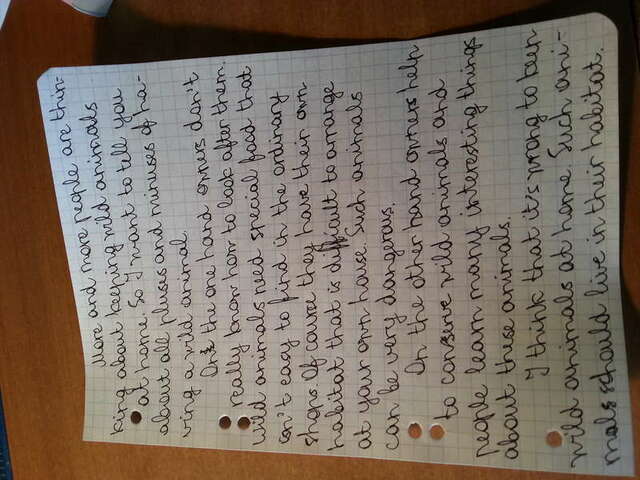 More and more people are thin-
king about keeping wild animals
at home. So I want to tell you
about all pluses and minuses of ha-
ving a wild animal.
On the one hand owners don't
really know how to look after them.
Wild animals need special food that
isn't easy to find in the ordinary
shops. Of course they have their own
habitat that is difficult to arrange
at your own house. Such animals
can be very dangerous.
On the other hand owners help
to conserve wild animals and
people learn many interesting things
about these animals.
I think that it's wrong to keep
wild animals at home. Such ani-
mals should live in their habitat.